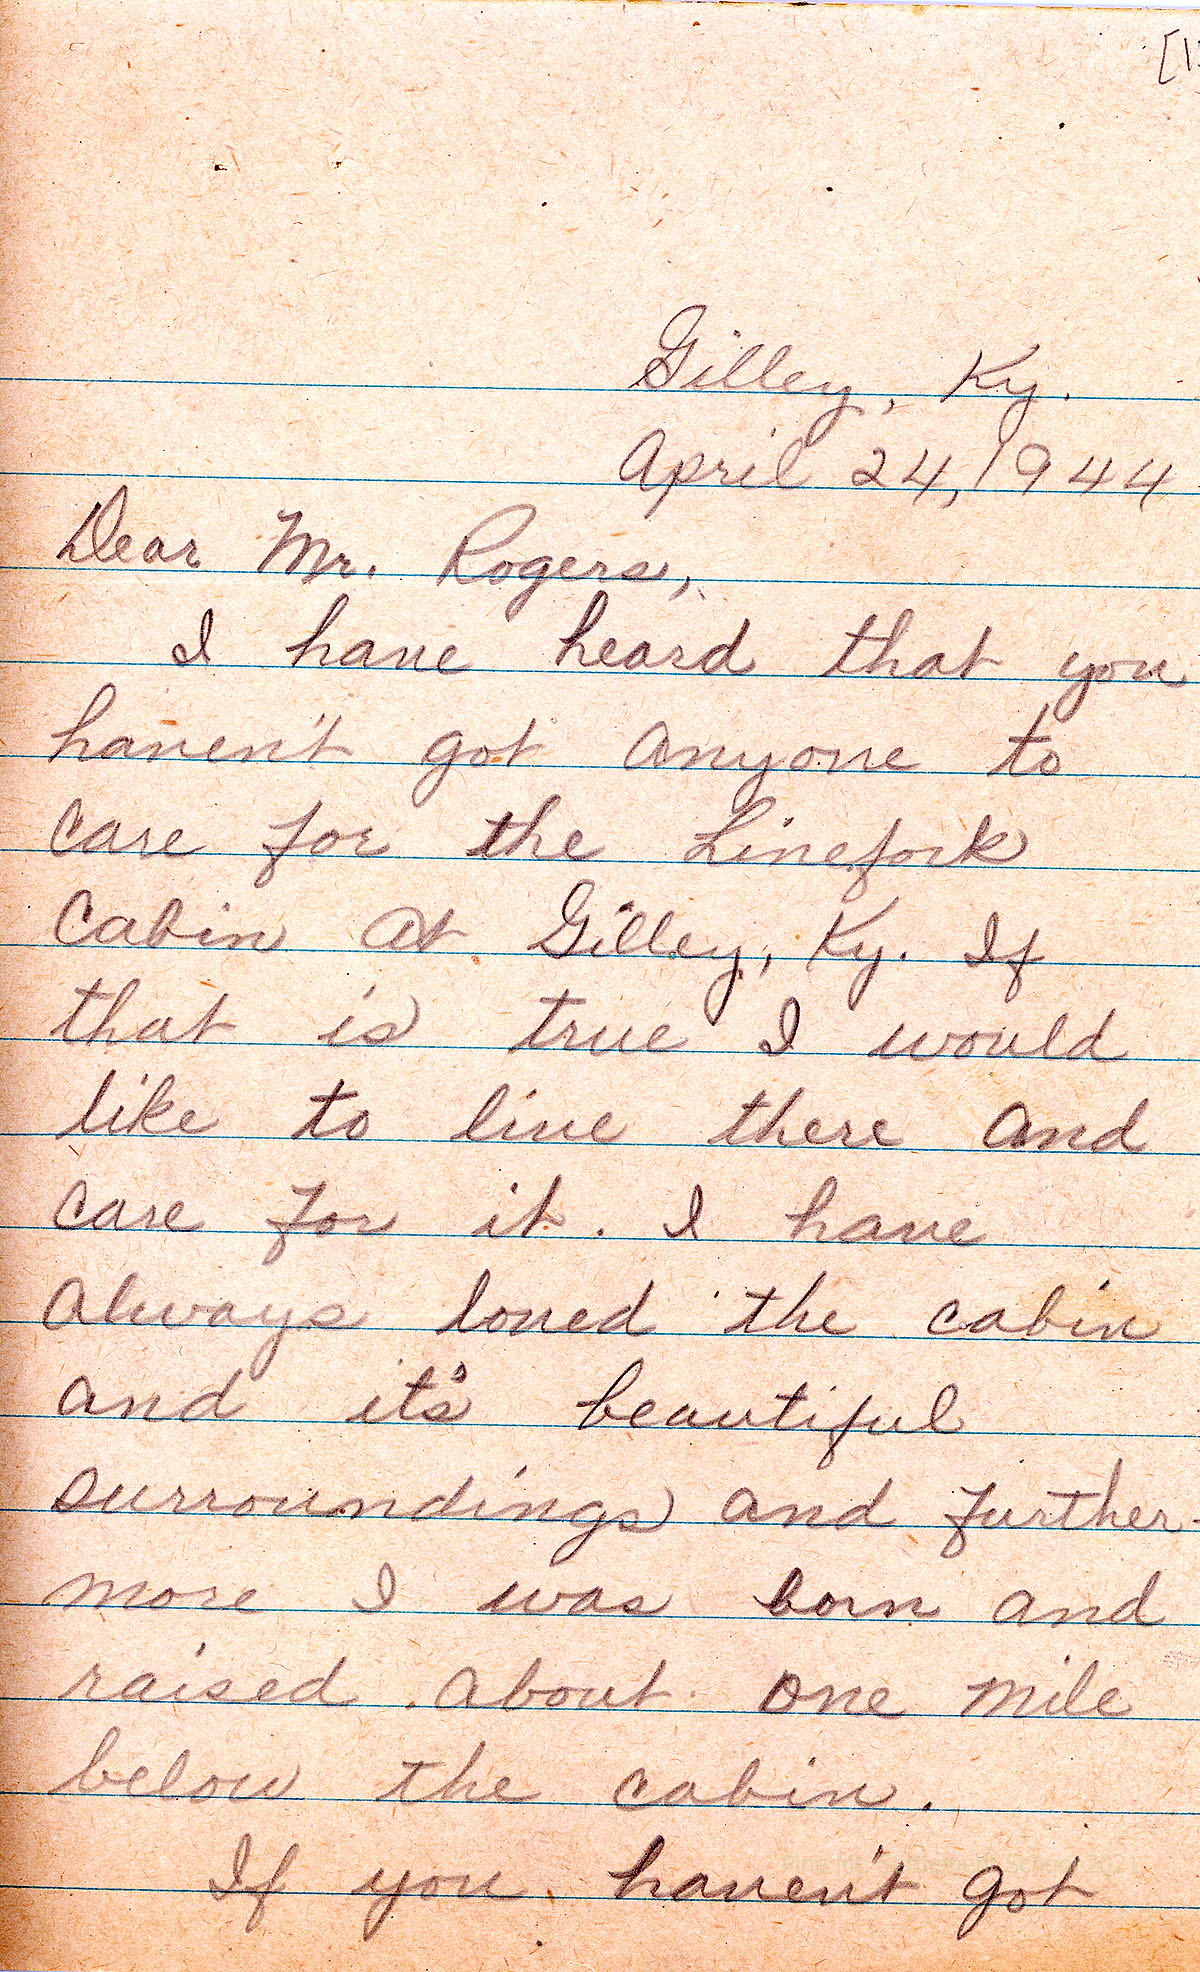 Gilley, Ky.
April 24, 1944
Dear Mr. Rogers,
I have heard that you
haven't got anyone to
care for the Linefork
Cabin at Gilley, Ky. If
that is true I would
like to live there and
care for it. I have
always loved the cabin
and it's beautiful
surroundings and further-
more I was born and
raised about one mile
below the cabin.
If you haven't got